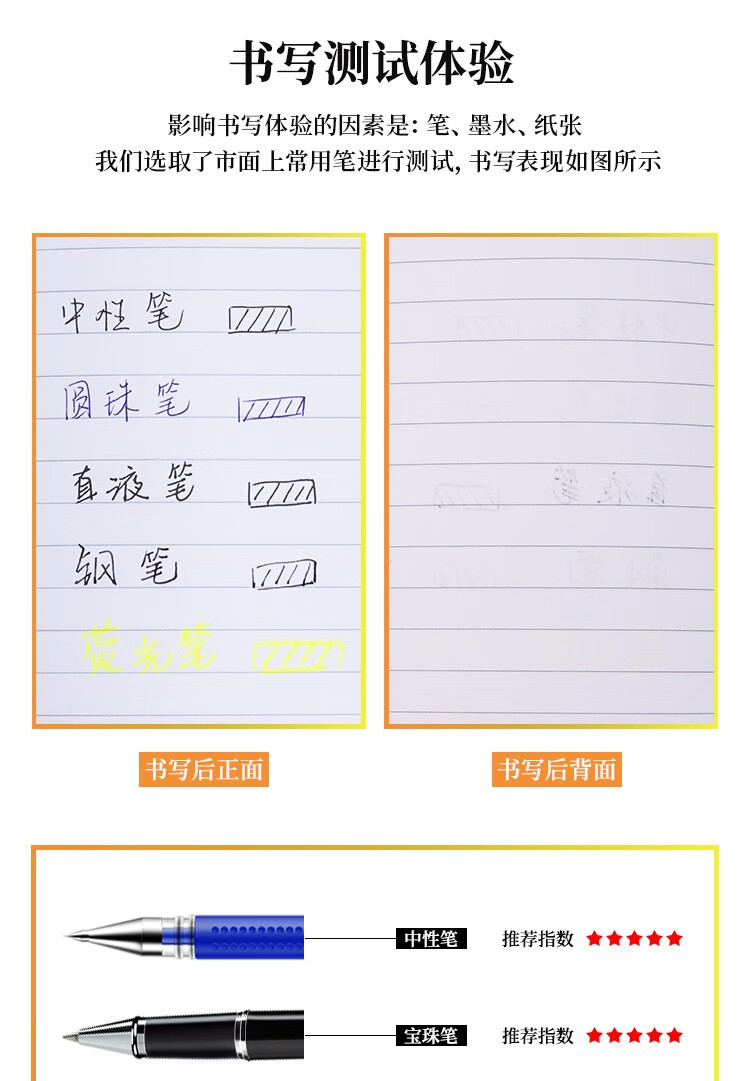 书写测试体验
影响书写体验的因素是：笔、墨水、纸张
我们选取了市面上常用笔进行测试，书写表现如图所示
中性笔
圆珠笔
直液笔
钢笔
荧光笔
书写后正面
书写后背面
中性笔 推荐指数
宝珠笔 推荐指数